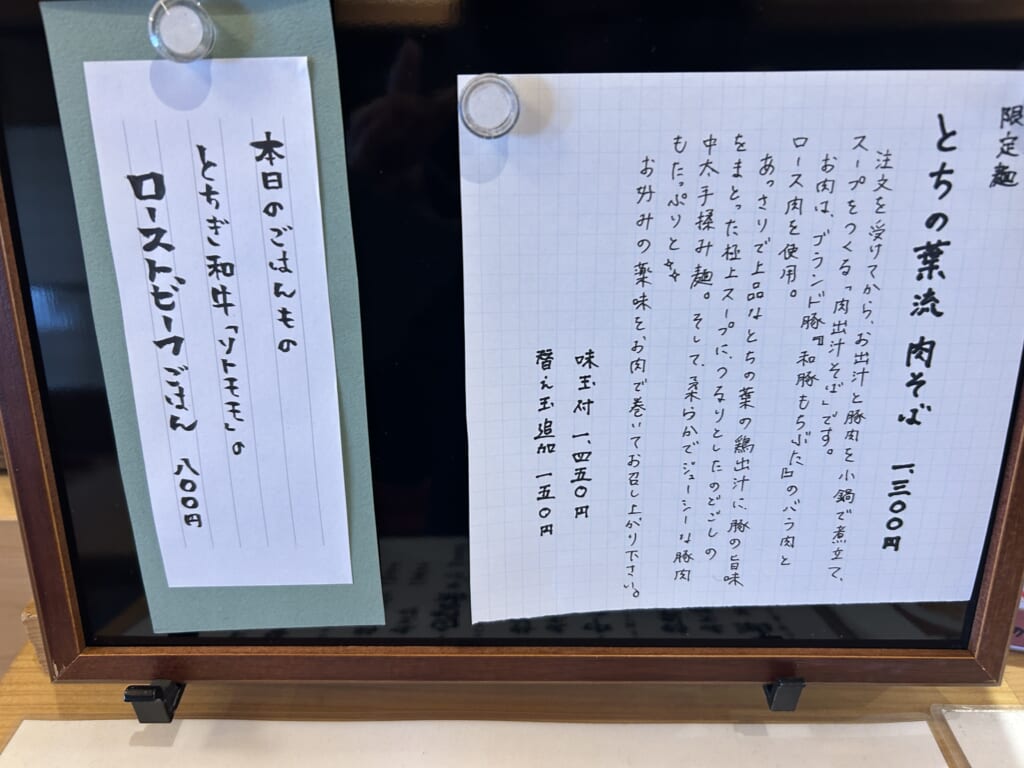 限定麺
とちの葉流 肉そば 一、三〇〇円
注文を受けてから、お出汁と豚肉を小鍋で煮立て、
スープをつくる「肉出汁そば」です。
お肉は、ブランド豚『和豚もちぶた』のバラ肉と
ロース肉を使用。
あっさりで上品なとちの葉の鶏出汁に豚の旨味
をまとった極上スープに、つるりとしたのどごしの
中太手揉み麺。そして、柔らかでジューシーな豚肉
もたっぷりと✨
お好みの薬味を、お肉で巻いてお召し上がり下さい。
味玉付 一、四五〇円
替え玉追加 一五〇円
本日のごはんもの
とちぎ和牛「ソトモモ」の
ローストビーフごはん 八〇〇円